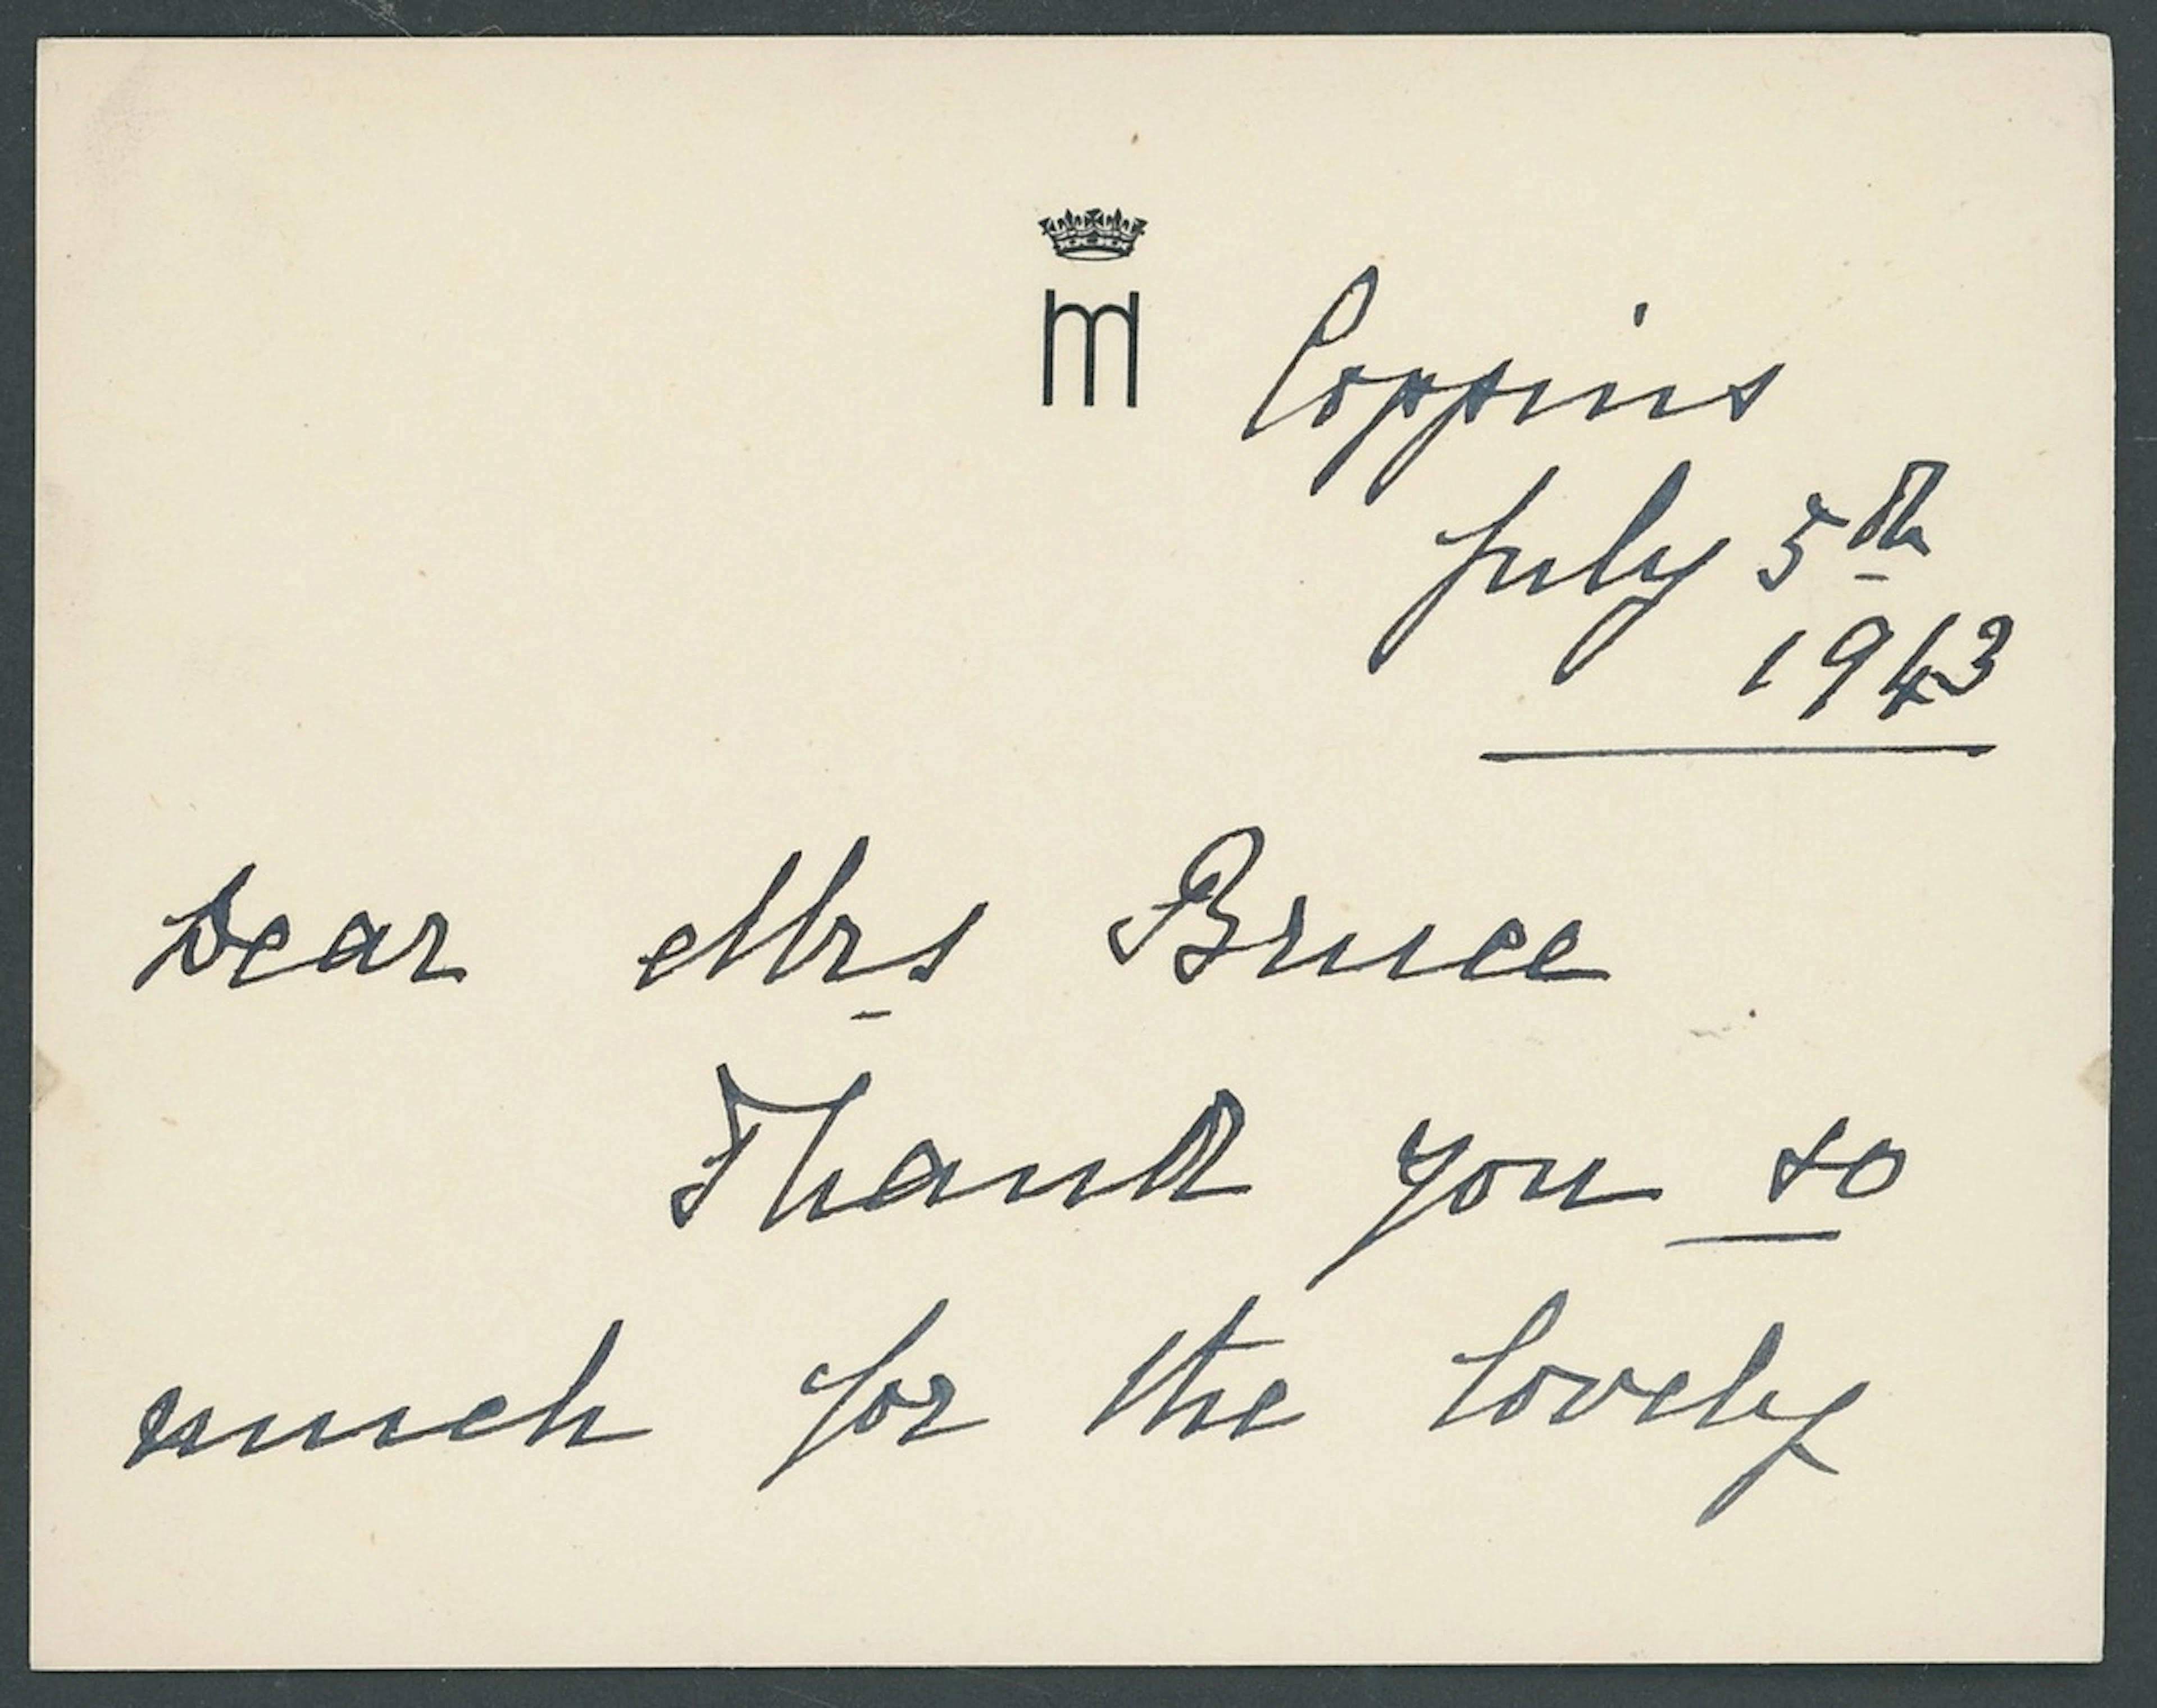 M
Coppins
July 5th
1943
Dear Mrs Bruce
Thank you so
much for the lovely